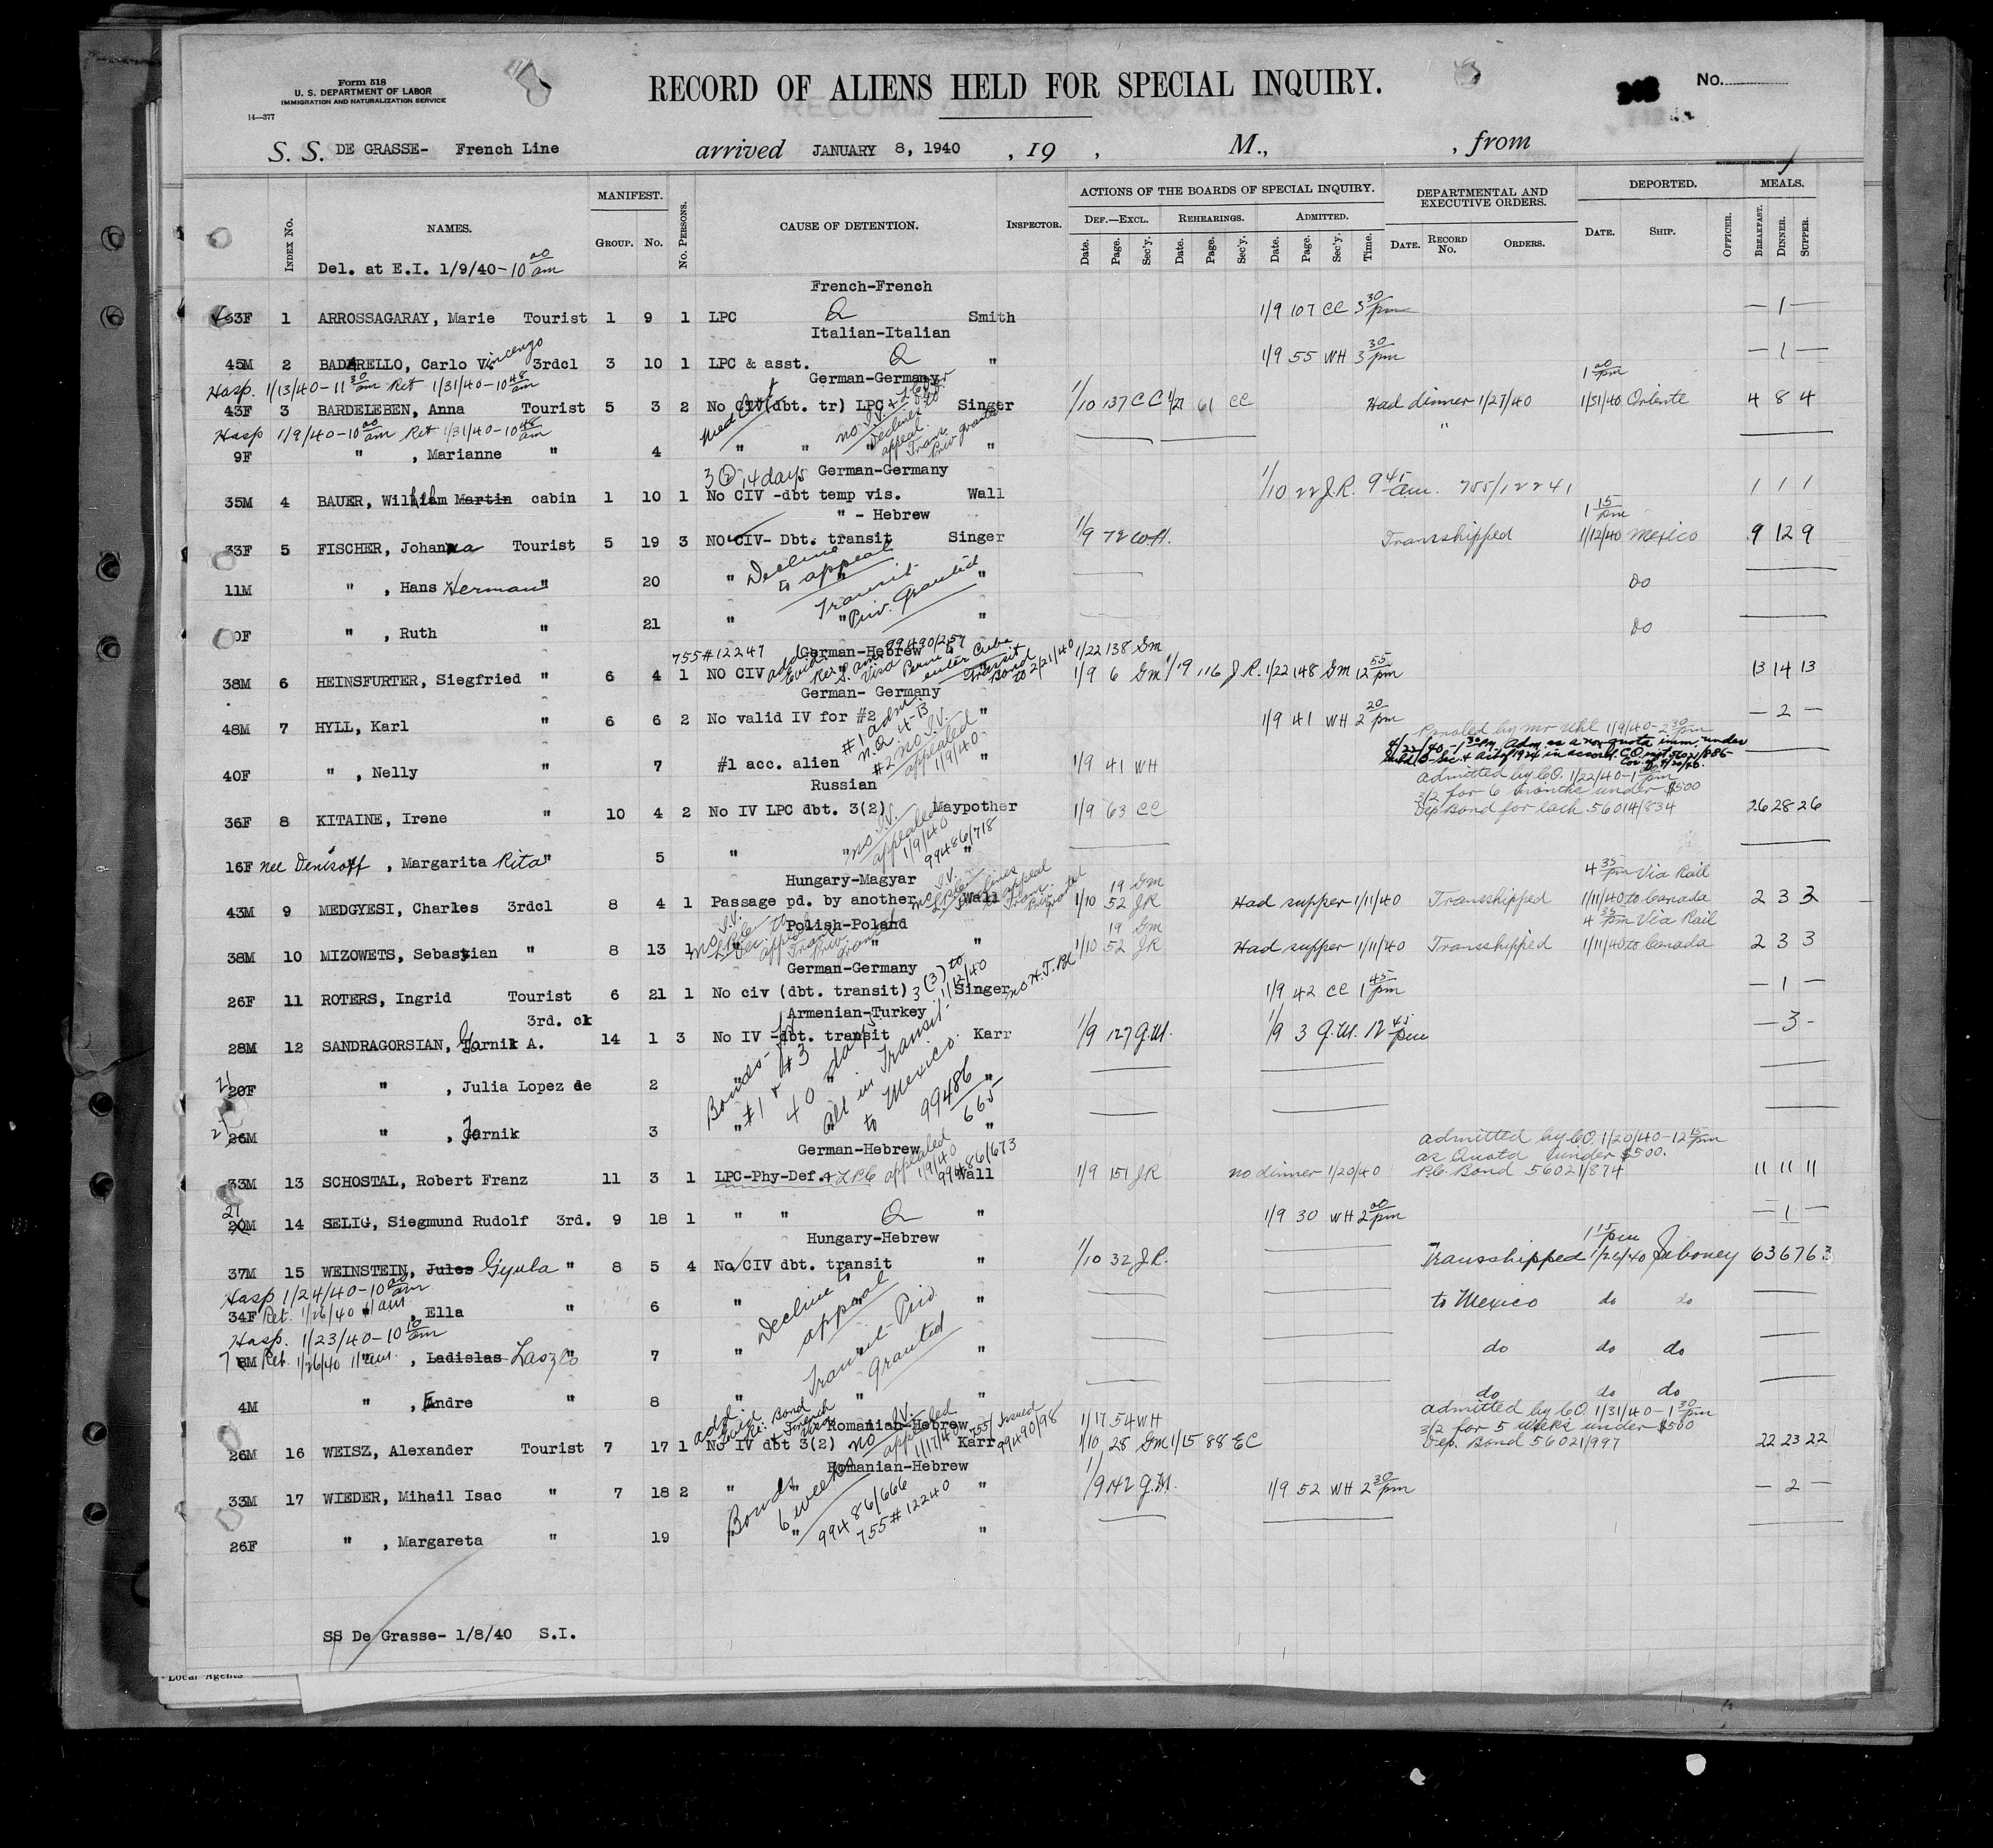 Form 518
U. S. DEPARTMENT OF LABOR
IMMIGRATION AND NATURALIZATION SERVICE
14—377
RECORD OF ALIENS HELD FOR SPECIAL INQUIRY.
No.
S. S. DE GRASSE- French Line arrived JANUARY 8, 1940 , 19 , M., , from
INDEX No. NAMES. MANIFEST. GROUP. No. No. PERSONS. CAUSE OF DETENTION. INSPECTOR. ACTIONS OF THE BOARDS OF SPECIAL INQUIRY. DEF.—EXCL. Date. Page. Sec'y. REHEARINGS. Date. Page. Sec'y. ADMITTED. Date. Page. Sec'y. Time. DEPARTMENTAL AND EXECUTIVE ORDERS. DATE. RECORD No. ORDERS. DEPORTED. DATE. SHIP. OFFICER. MEALS. BREAKFAST. DINNER. SUPPER.
Del. at E.I. 1/9/40-10 00 am
French-French
33F 1 ARROSSAGARAY, Marie Tourist 1 9 1 LPC Smith 1/9 107 CC 3 30 pm — 1 —
Italian-Italian
45M 2 BADARELLO, Carlo Vincenzo 3rdcl 3 10 1 LPC & asst. " 1/9 55 WH 3 30 pm — 1 —
German-Germany
1 00 pm
Hosp. 1/13/40-11 30 am Ret 1/31/40-10 48 am
43F 3 BARDELEBEN, Anna Tourist 5 3 2 No CIV(dbt. tr) LPC Singer 1/10 137 CC 1/27 61 CC Had dinner 1/27/40 1/31/40 Oriente 4 8 4
Med Cert
no I.V. & LPC
Declines to appeal.
Trans. Priv granted
Hosp 1/9/40-10 00 am Ret 1/31/40-10 48 am
9F " , Marianne " 4 " " " " "
3(2) 14 days German-Germany
35M 4 BAUER, William Martin cabin 1 10 1 No CIV -dbt temp vis. Wall 1/10 22 J.R. 9 45 am. 755/12241 1 1 1
" - Hebrew
1 15 pm
33F 5 FISCHER, Johanna Tourist 5 19 3 NO CIV- Dbt. transit Singer 1/9 72 WH. Transhipped 1/12/40 Mexico 9 12 9
Decline to appeal
11M " , Hans Herman " 20 " " " Do
Transit Priv. Granted
0F " , Ruth " 21 " " " Do
755#12247 German-Hebrew 99490/257 1/22 138 Gm
38M 6 HEINSFURTER, Siegfried " 6 4 1 NO CIV " 1/9 6 Gm 1/19 116 J.R. 1/22 148 Gm 12 55 pm 13 14 13
Transit Bond to 2/21/40
German- Germany
48M 7 HYLL, Karl " 6 6 2 No valid IV for #2 " 1/9 41 WH 2 20 pm — 2 —
#1 adm N.Q. 4-B
#2 no I.V. appealed 1/9/40
Paroled by Mr Uhl 1/9/40-2 30 pm
40F " , Nelly " 7 #1 acc. alien " 1/9 41 WH
Russian
admitted by CO. 1/22/40-1 00 pm
3/2 for 6 months under $500
36F 8 KITAINE, Irene " 10 4 2 No IV LPC dbt. 3(2) Maypother 1/9 63 CC Dep Bond for each 56014/834 26 28 26
no I.V. appealed 1/9/40 99486/718
16F nee Denisoff , Margarita Rita " 5 " " "
Hungary-Magyar
19 Gm
4 35 pm Via Rail
43M 9 MEDGYESI, Charles 3rdcl 8 4 1 Passage pd. by another Wall 1/10 52 JR Had supper 1/11/40 Transshipped 1/11/40 to Canada 2 3 3
Polish-Poland
19 Gm
4 35 pm Via Rail
38M 10 MIZOWETS, Sebastian " 8 13 1 " " " 1/10 52 JR Had supper 1/11/40 Transshipped 1/11/40 to Canada 2 3 3
German-Germany
26F 11 ROTERS, Ingrid Tourist 6 21 1 No civ (dbt. transit) 3(3) to 1/12/40 Singer no H.T. Bd 1/9 42 CC 1 45 pm — 1 —
Armenian-Turkey
3rd. cl
28M 12 SANDRAGORSIAN, Garnik A. 14 1 3 No IV -dbt. transit Karr 1/9 127 G.M. 1/9 3 G.M. 12 45 pm — 3 —
21 20F " , Julia Lopez de 2 " " "
Bonds- #1 & #3 40 days
All in Transit to Mexico.
99486/665
26M " , Jarnik 3 " " "
German-Hebrew
admitted by CO. 1/20/40-12 15 pm
as Quota under $500.
33M 13 SCHOSTAL, Robert Franz 11 3 1 LPC-Phy-Def. & LPC appealed 1/9/40 99486/673 Wall 1/9 151 JR no dinner 1/20/40 P.C. Bond 56021/874 11 11 11
21 20M 14 SELIG, Siegmund Rudolf 3rd. 9 18 1 " " " 1/9 30 WH 2 00 pm — 1 —
Hungary-Hebrew
1 15 pm
37M 15 WEINSTEIN, Jules Gyula " 8 5 4 No CIV dbt. transit " 1/10 32 J.R. Transshipped 1/26/40 Siboney 63 67 63
Hosp 1/24/40-10 00 am
34F Ret. 1/26/40 11 am , Ella " 6 " " " to Mexico do do
Decline to appeal
Hosp. 1/23/40-10 10 am
7 8M Ret. 1/26/40 11 am. , Ladislas Laszlo " 7 " " do do do
Transit Priv. Granted
4M " , Andre " 8 " " " do do do
Romanian-Hebrew
1/17 54 WH
admitted by CO. 1/31/40-1 30 pm
3/2 for 5 weeks under $500
26M 16 WEISZ, Alexander Tourist 7 17 1 No IV dbt 3(2) Karr 1/10 28 Gm 1/15 88 EC Dep. Bond 56021/997 22 23 22
no I.V. appealed 1/17/40 755/ Issued 99490/98
Romanian-Hebrew
33M 17 WIEDER, Mihail Isac " 7 18 2 " " " 1/9 142 G.M. 1/9 52 WH 2 30 pm — 2 —
Bonds 6 weeks
99486/666
755#12240
26F " , Margareta " 19 " " "
SS De Grasse- 1/8/40 S.I.
Local Agents